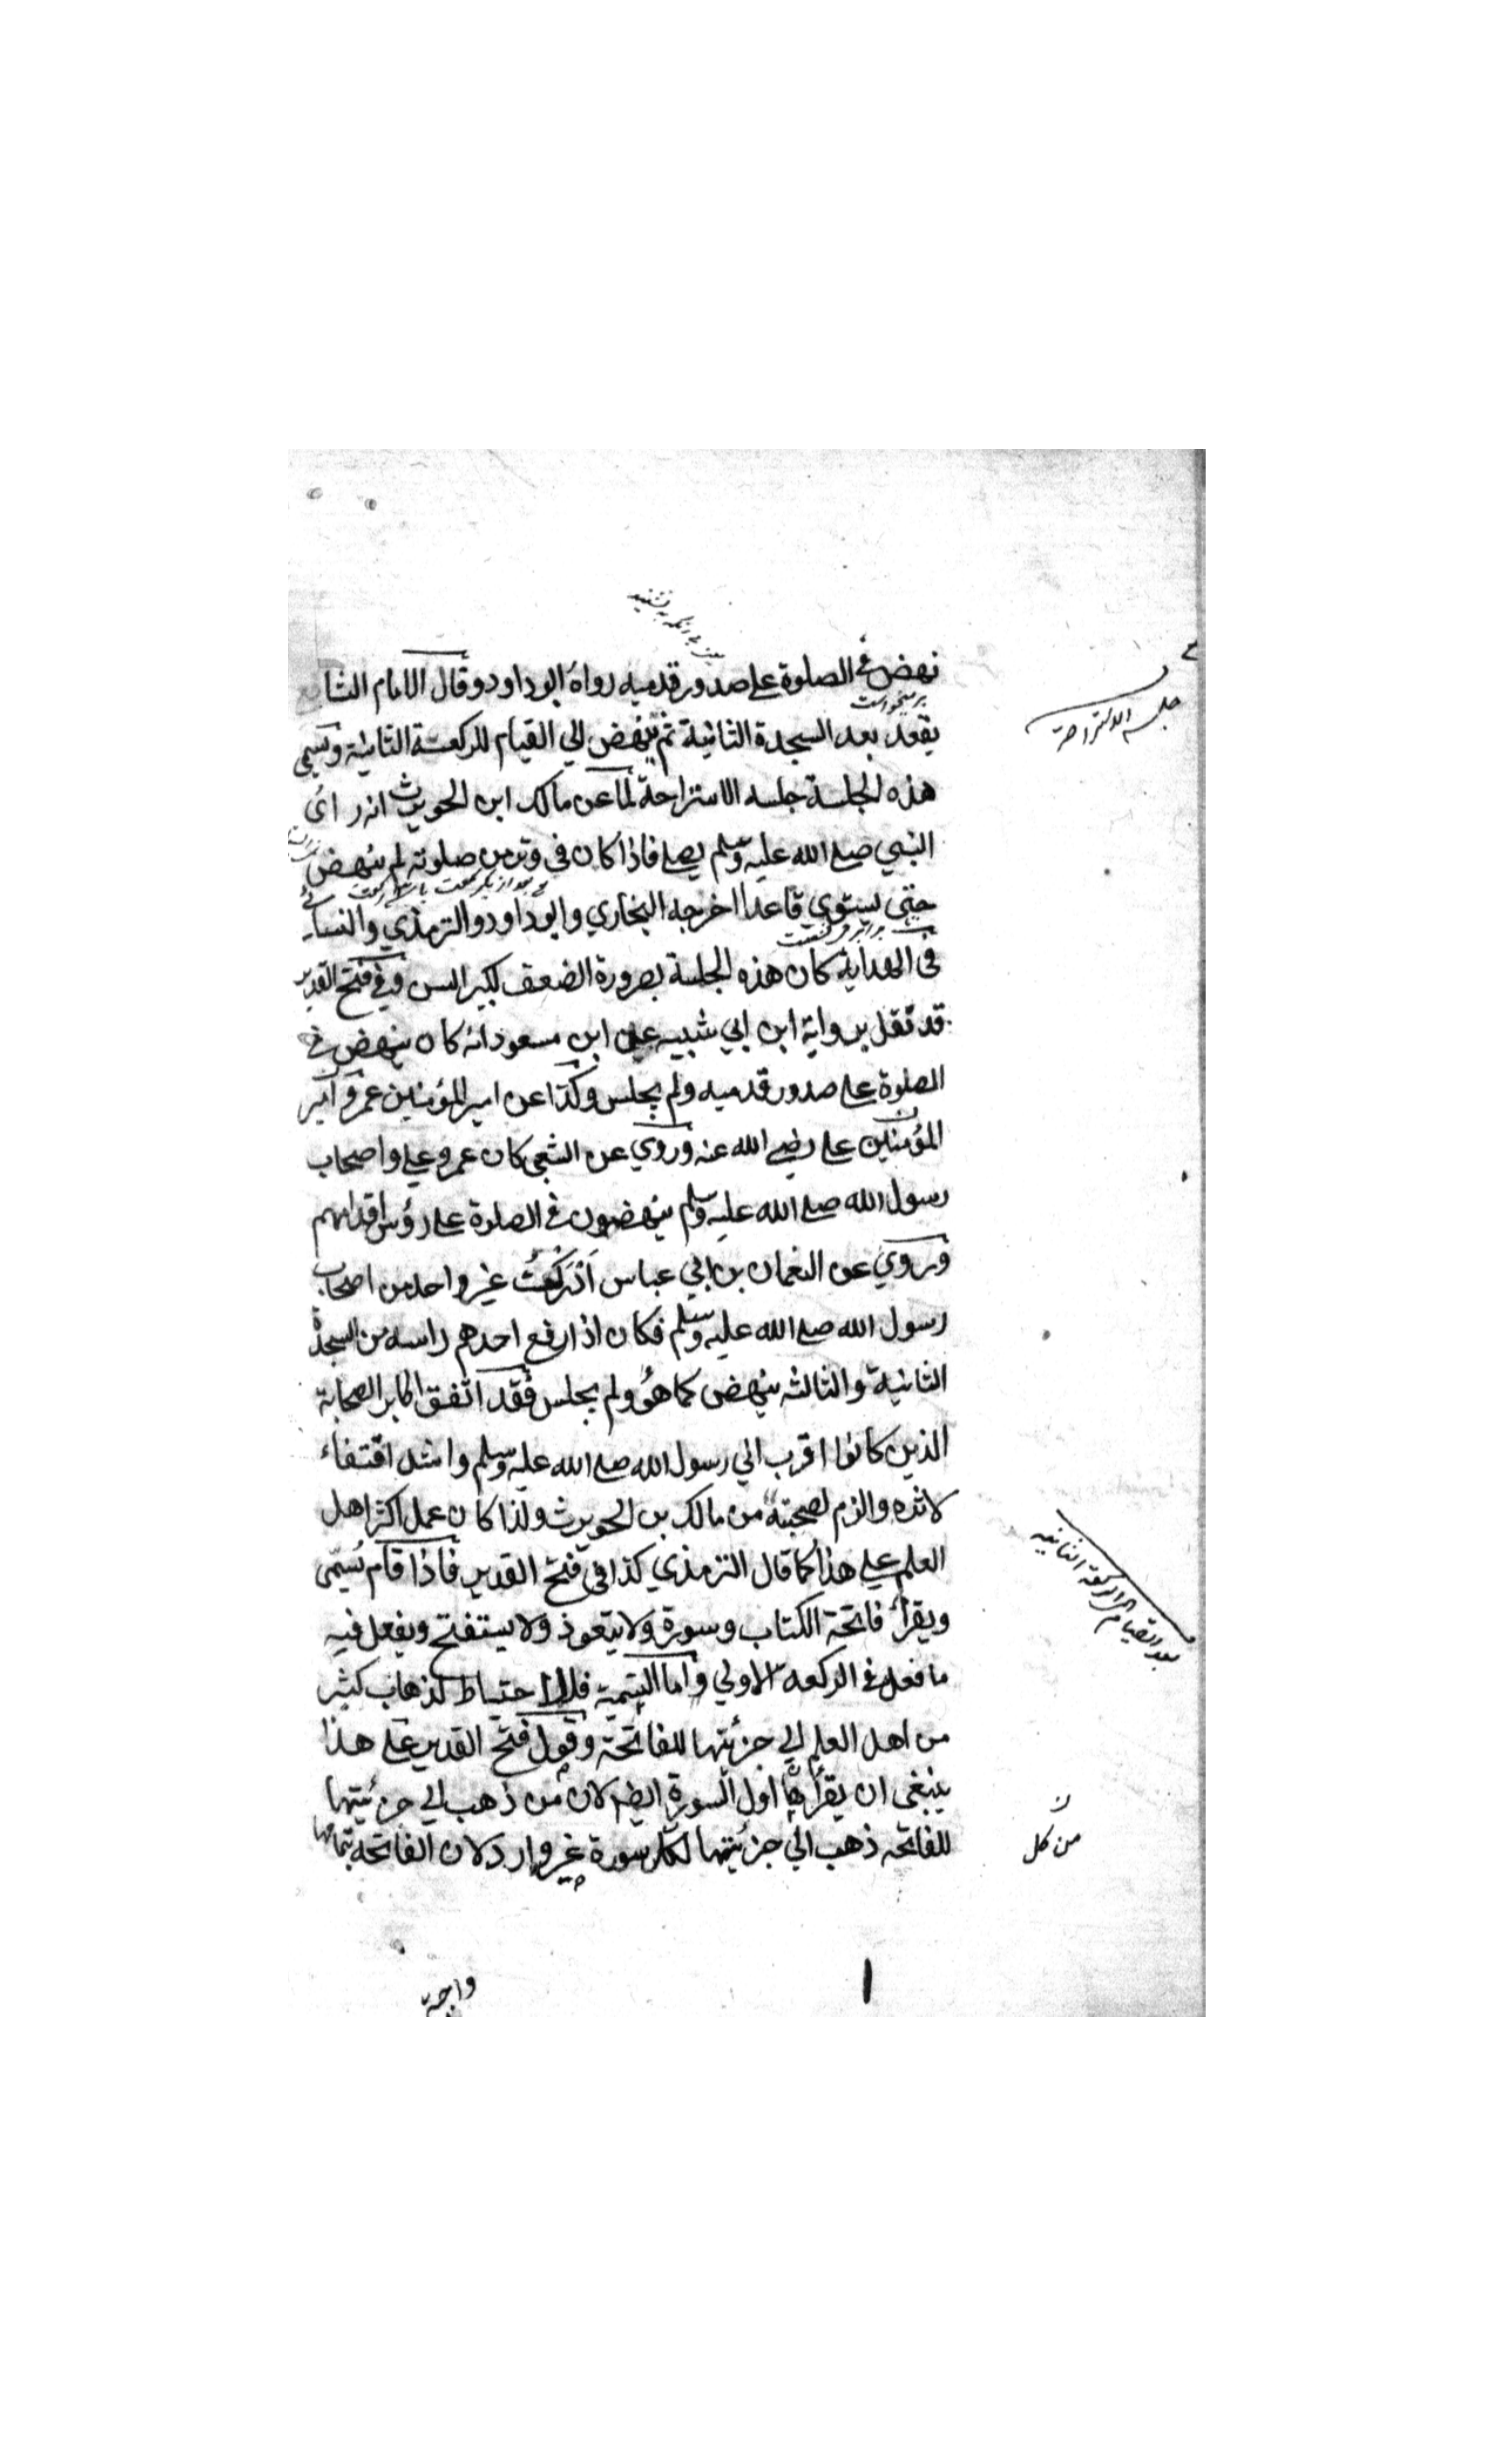 نهض في الصلوة علے صدور قدميه رواه ابو داود وقال الامام الشا
يقعد بعد السجدة الثانية ثم ينهض الي القيام للركعة الثانية وتسمي
هذه الجلسة جلسه الاستراحة لما عن مالك ابن الحويرث انه رائ
النبي صلے الله عليه وسلم يصلے فاذا كان في وتر من صلوته لم ينهض
حتي يستوي قاعدا اخرجه البخاري وابو داود والترمذي والنسائے
في الهداية كان هذه الجلسة بصرورة الضعف لكبر السن وفي فتح القدير
قد نقل برواية ابن ابي شيبه عن ابن مسعود انه كان ينهض في
الصلوة علے صدور قدميه ولم يجلس وكذا عن امير المؤمنين عمر وامير
المؤمنين علے رضے الله عنه وروي عن الشعبي كان عمر وعلے واصحاب
رسول الله صلے الله عليه وسلم ينهضون في الصلوة علے رؤس اقدامهم
وروي عن النعمان بن ابي عباس ادركت غير واحد من اصحاب
رسول الله صلے الله عليه وسلم فكان اذا رفع احدهم راسه من السجدة
الثانية والثالثه ينهض كما هو ولم يجلس فقد اتفق اكابر الصحابة
الذين كانوا اقرب الي رسول الله صلے الله عليه وسلم واشد اقتفاء
لاثره والزم لصحبته من مالك بن الحويرث ولذا كان عمل اكثر اهل
العلم علي هذا كما قال الترمذي كذا في فتح القدير فاذا قام يسمي
ويقرأ فاتحة الكتاب وسورة ولا يتعوذ ولا يستفتح ويفعل فيه
ما فعل في الركعه الاولي واما التسمية فللاحتياط لذهاب كثير
من اهل العلم الي جزئيتها للفاتحة وقول فتح القدير علے هذا
ينبغي ان يقرأها اول السورة ايضا لان من ذهب الي جزئيتها
للفاتحه ذهب الي جزئيتها لكل سورة غير وارد لان الفاتحة بتمامها
جلسه الاستراحة
بعد القيام الركعة الثانيه
ن
من كل
واجبة